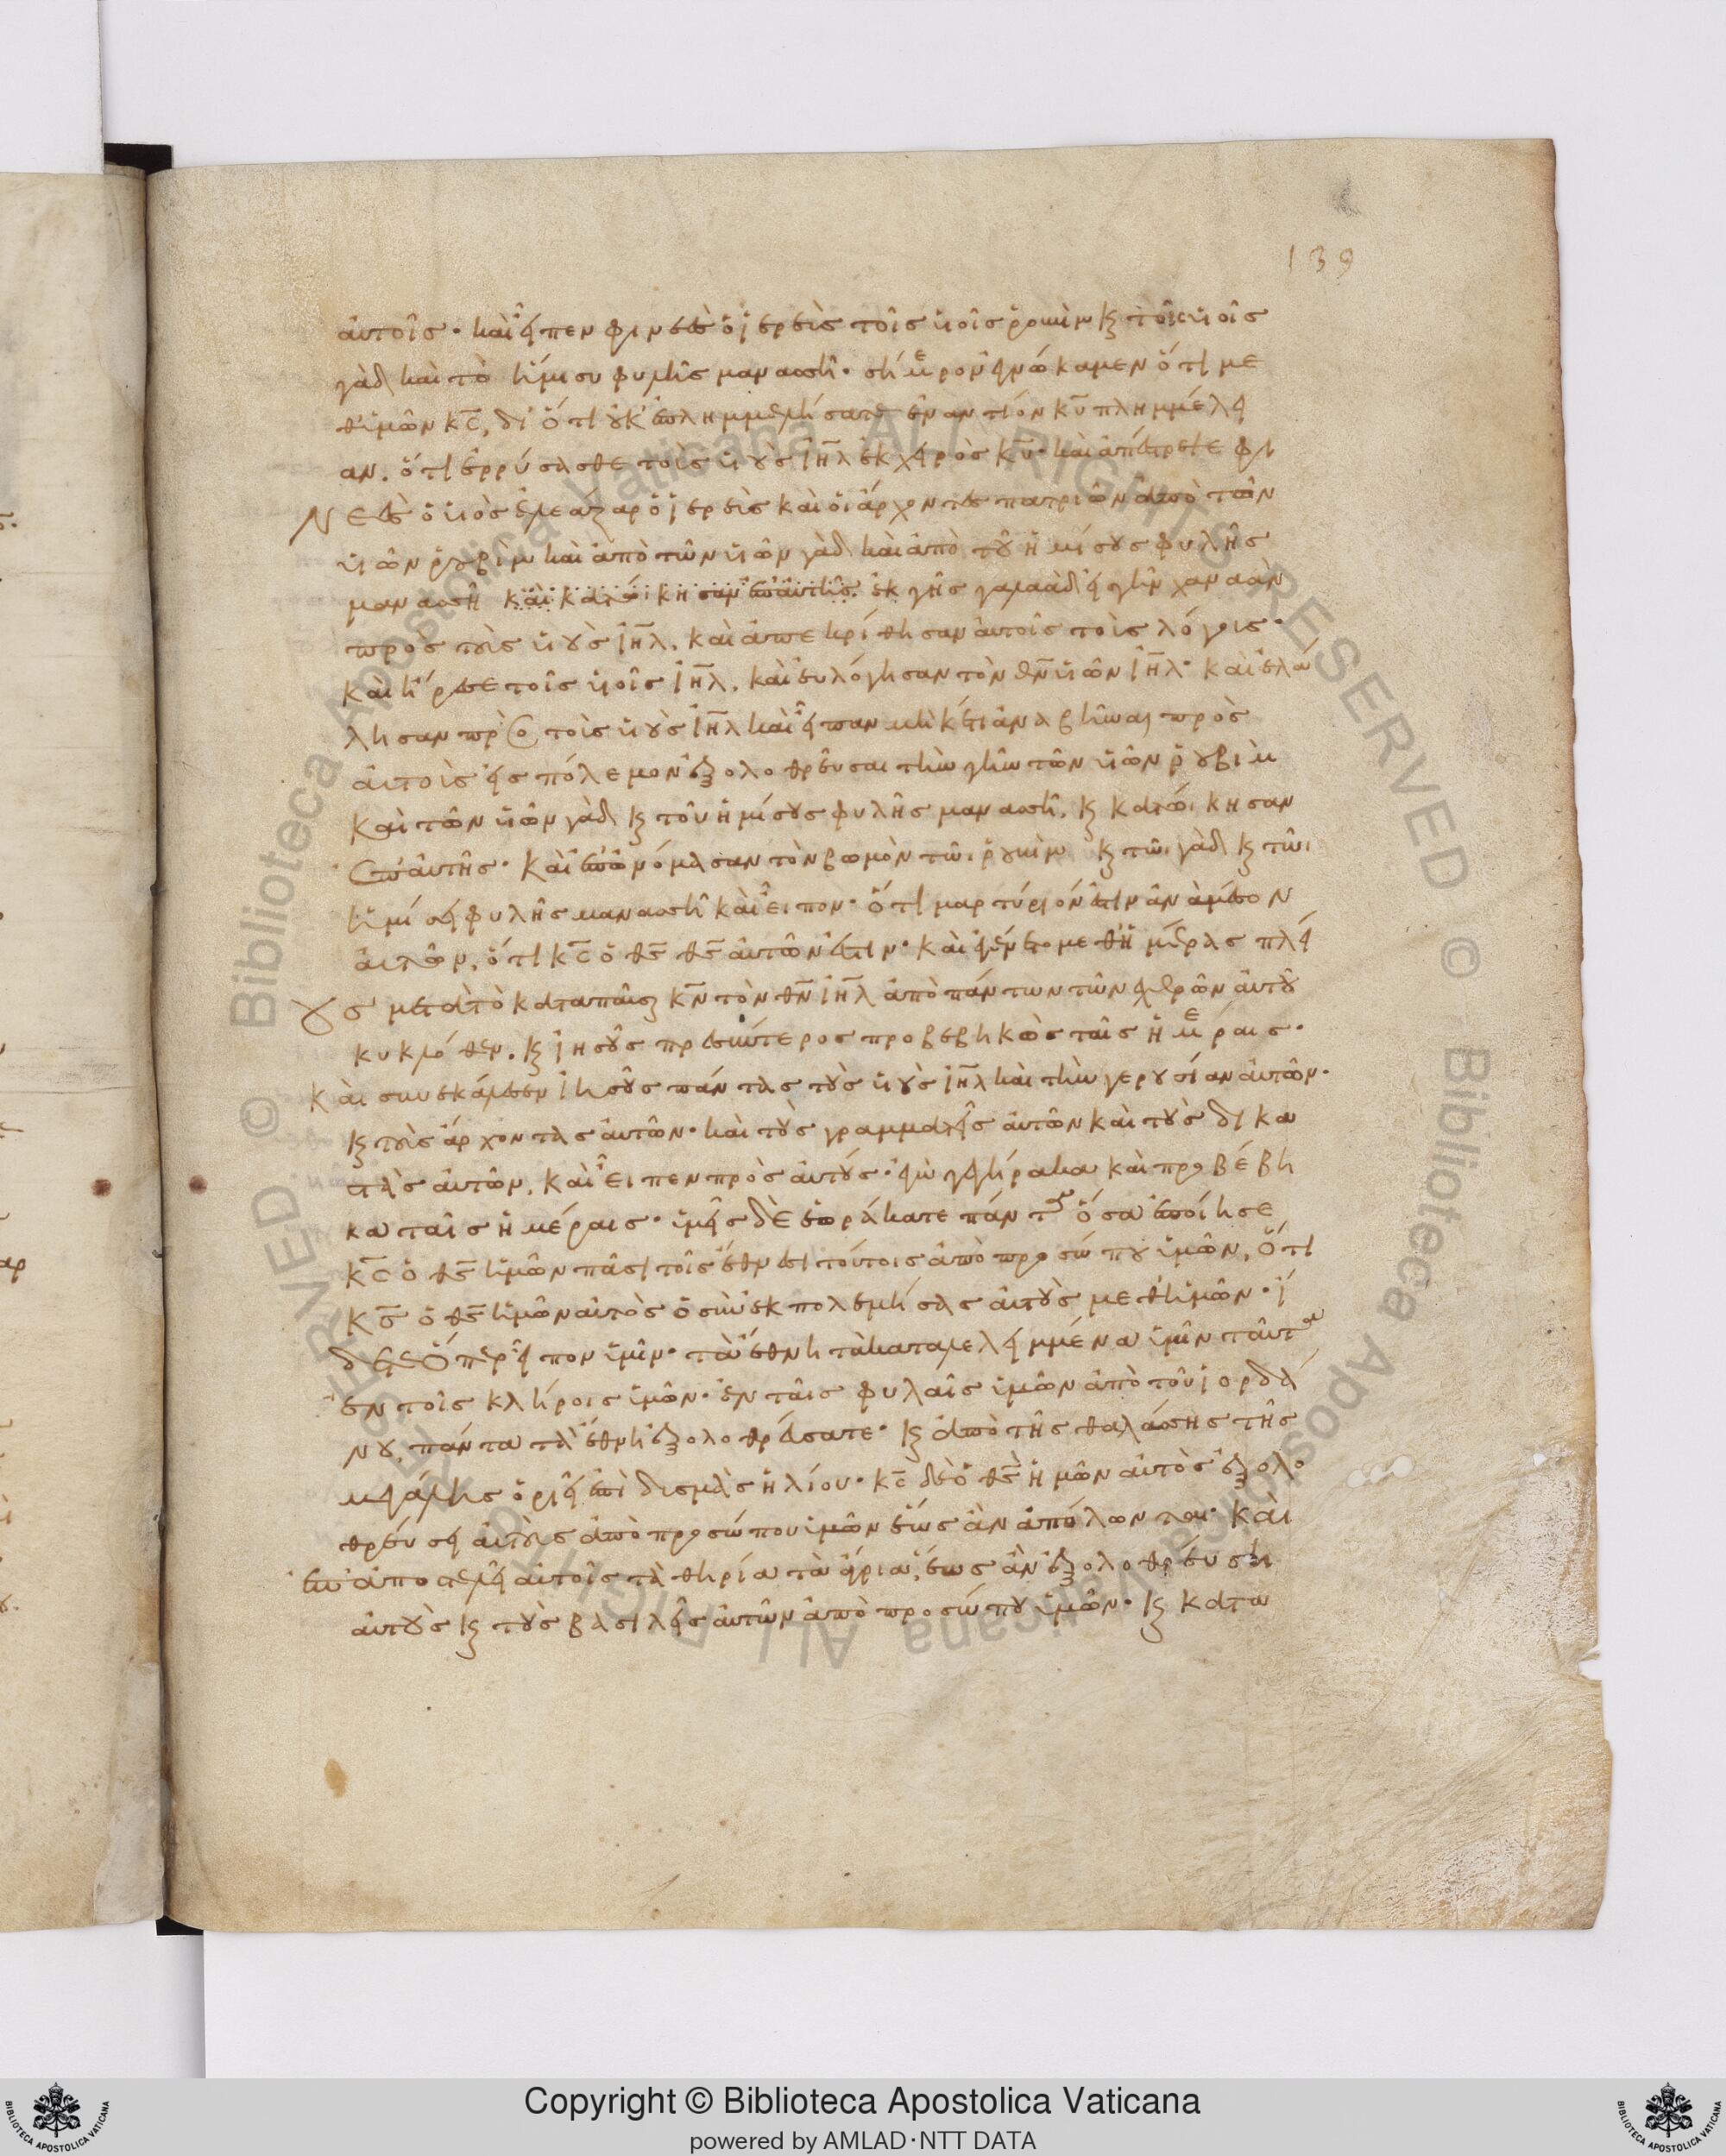 139
αὐτοῖς· καὶ εἶπεν φινεὲς ὁ ἱερεὺς τοῖς υἱοῖς ῥουβὶμ κ τοῖς υἱοῖς
γὰδ καὶ τὸ ἥμισυ φυλῆς μανασσῆ· σήμερον ἐγνώκαμεν ὅτι με
θ' ἡμῶν κς, διότι οὐκ ἐπλημμελήσατε ἐναντίον κυ πλημμέλει
αν. ὅτι ἐρρύσασθε τοὺς υἱοὺς ιηλ ἐκ χειρὸς κυ· καὶ ἀπέστρεψε φι
Νεὲς ὁ υἱὸς ἐλεάζαρ ὁ ἱερεὺς καὶ οἱ ἄρχοντες πατριῶν ἀπὸ τῶν
υἱῶν ῥουβὶμ καὶ ἀπὸ τῶν υἱῶν γὰδ καὶ ἀπὸ τοῦ ἡμίσους φυλῆς
μανασσῆ καὶ κατώικησαν ἐπ' αὐτῆς. ἐκ γῆς γαλαὰδ εἰς γῆν χαναὰν
πρὸς τοὺς υἱοὺς ιηλ. καὶ ἀπεκρίθησαν αὐτοῖς τοὺς λόγους·
Καὶ ἤρεσε τοῖς υἱοῖς ιηλ. καὶ εὐλόγησαν τὸν θν υἱῶν ιηλ· καὶ ἐλά
λησαν πρὸς τοὺς υἱοὺς ιηλ καὶ εἶπαν μηκέτι ἀναβῆναι πρὸς
αὐτοὺς εἰς πόλεμον ἐξολοθρεῦσαι τὴν γῆν τῶν υἱῶν ῥουβὶμ
Καὶ τῶν υἱῶν γὰδ κ τοῦ ἡμίσους φυλῆς μανασσῆ. κ κατώικησαν
ἐπ' αὐτῆς· Καὶ ἐπωνόμασαν τὸν βωμὸν τῶι ῥουβὶμ κ τῶι γὰδ κ τῶι
ἡμίσει φυλῆς μανασσῆ καὶ εἶπον· ὅτι μαρτύριόν ἐστιν ἀνὰ μέσον
αὐτῶν, ὅτι κς ὁ θς θς αὐτῶν ἐστιν· καὶ ἐγένετο μεθ' ἡμέρας πλεί
ους μετὰ τὸ καταπαῦσαι κν τὸν θν ιηλ ἀπὸ πάντων τῶν ἐχθρῶν αὐτοῦ
κυκλόθεν. κ ἰησοῦς πρεσβύτερος προβεβηκὼς ταῖς ἡμέραις·
Καὶ συνεκάλεσεν ἰησοῦς πάντας τοὺς υἱοὺς ιηλ καὶ τὴν γερουσίαν αὐτῶν·
κ τοὺς ἄρχοντας αὐτῶν· καὶ τοὺς γραμματεῖς αὐτῶν καὶ τοὺς δικα
στὰς αὐτῶν. καὶ εἶπεν πρὸς αὐτούς· ἐγὼ γεγήρακα καὶ προβέβη
κα ταῖς ἡμέραις· ὑμεῖς δὲ ἑωράκατε πάντα ὅσα ἐποίησε
κς ὁ θς ἡμῶν πᾶσι τοῖς ἔθνεσι τούτοις ἀπὸ προσώπου ὑμῶν, ὅτι
κς ὁ θς ἡμῶν αὐτὸς ὁ συνεκπολεμήσας αὐτοὺς μεθ' ἡμῶν· ἴ
δετε ὅπερ εἶπον ὑμῖν· τὰ ἔθνη τὰ καταλελειμμένα ὑμῖν ταῦτα
ἐν τοῖς κλήροις ὑμῶν· ἐν ταῖς φυλαῖς ὑμῶν ἀπὸ τοῦ ἰορδά
νου. πάντα τὰ ἔθνη ἐξολοθρεύσατε· κ ἀπὸ τῆς θαλάσσης τῆς
μεγάλης ὁριεῖ ἐπὶ δυσμὰς ἡλίου· κς δὲ ὁ θς ἡμῶν αὐτὸς ἐξολο
θρεύσει αὐτοὺς ἀπὸ προσώπου ὑμῶν ἕως ἂν ἀπόλωνται· καὶ
ἐπαποστελεῖ αὐτοῖς τὰ θηρία τὰ ἄγρια, ἕως ἂν ἐξολοθρεύσει
αὐτοὺς κ τοὺς βασιλεῖς αὐτῶν ἀπὸ προσώπου ὑμῶν· κ κατι
Copyright © Biblioteca Apostolica Vaticana
powered by AMLAD·NTT DATA